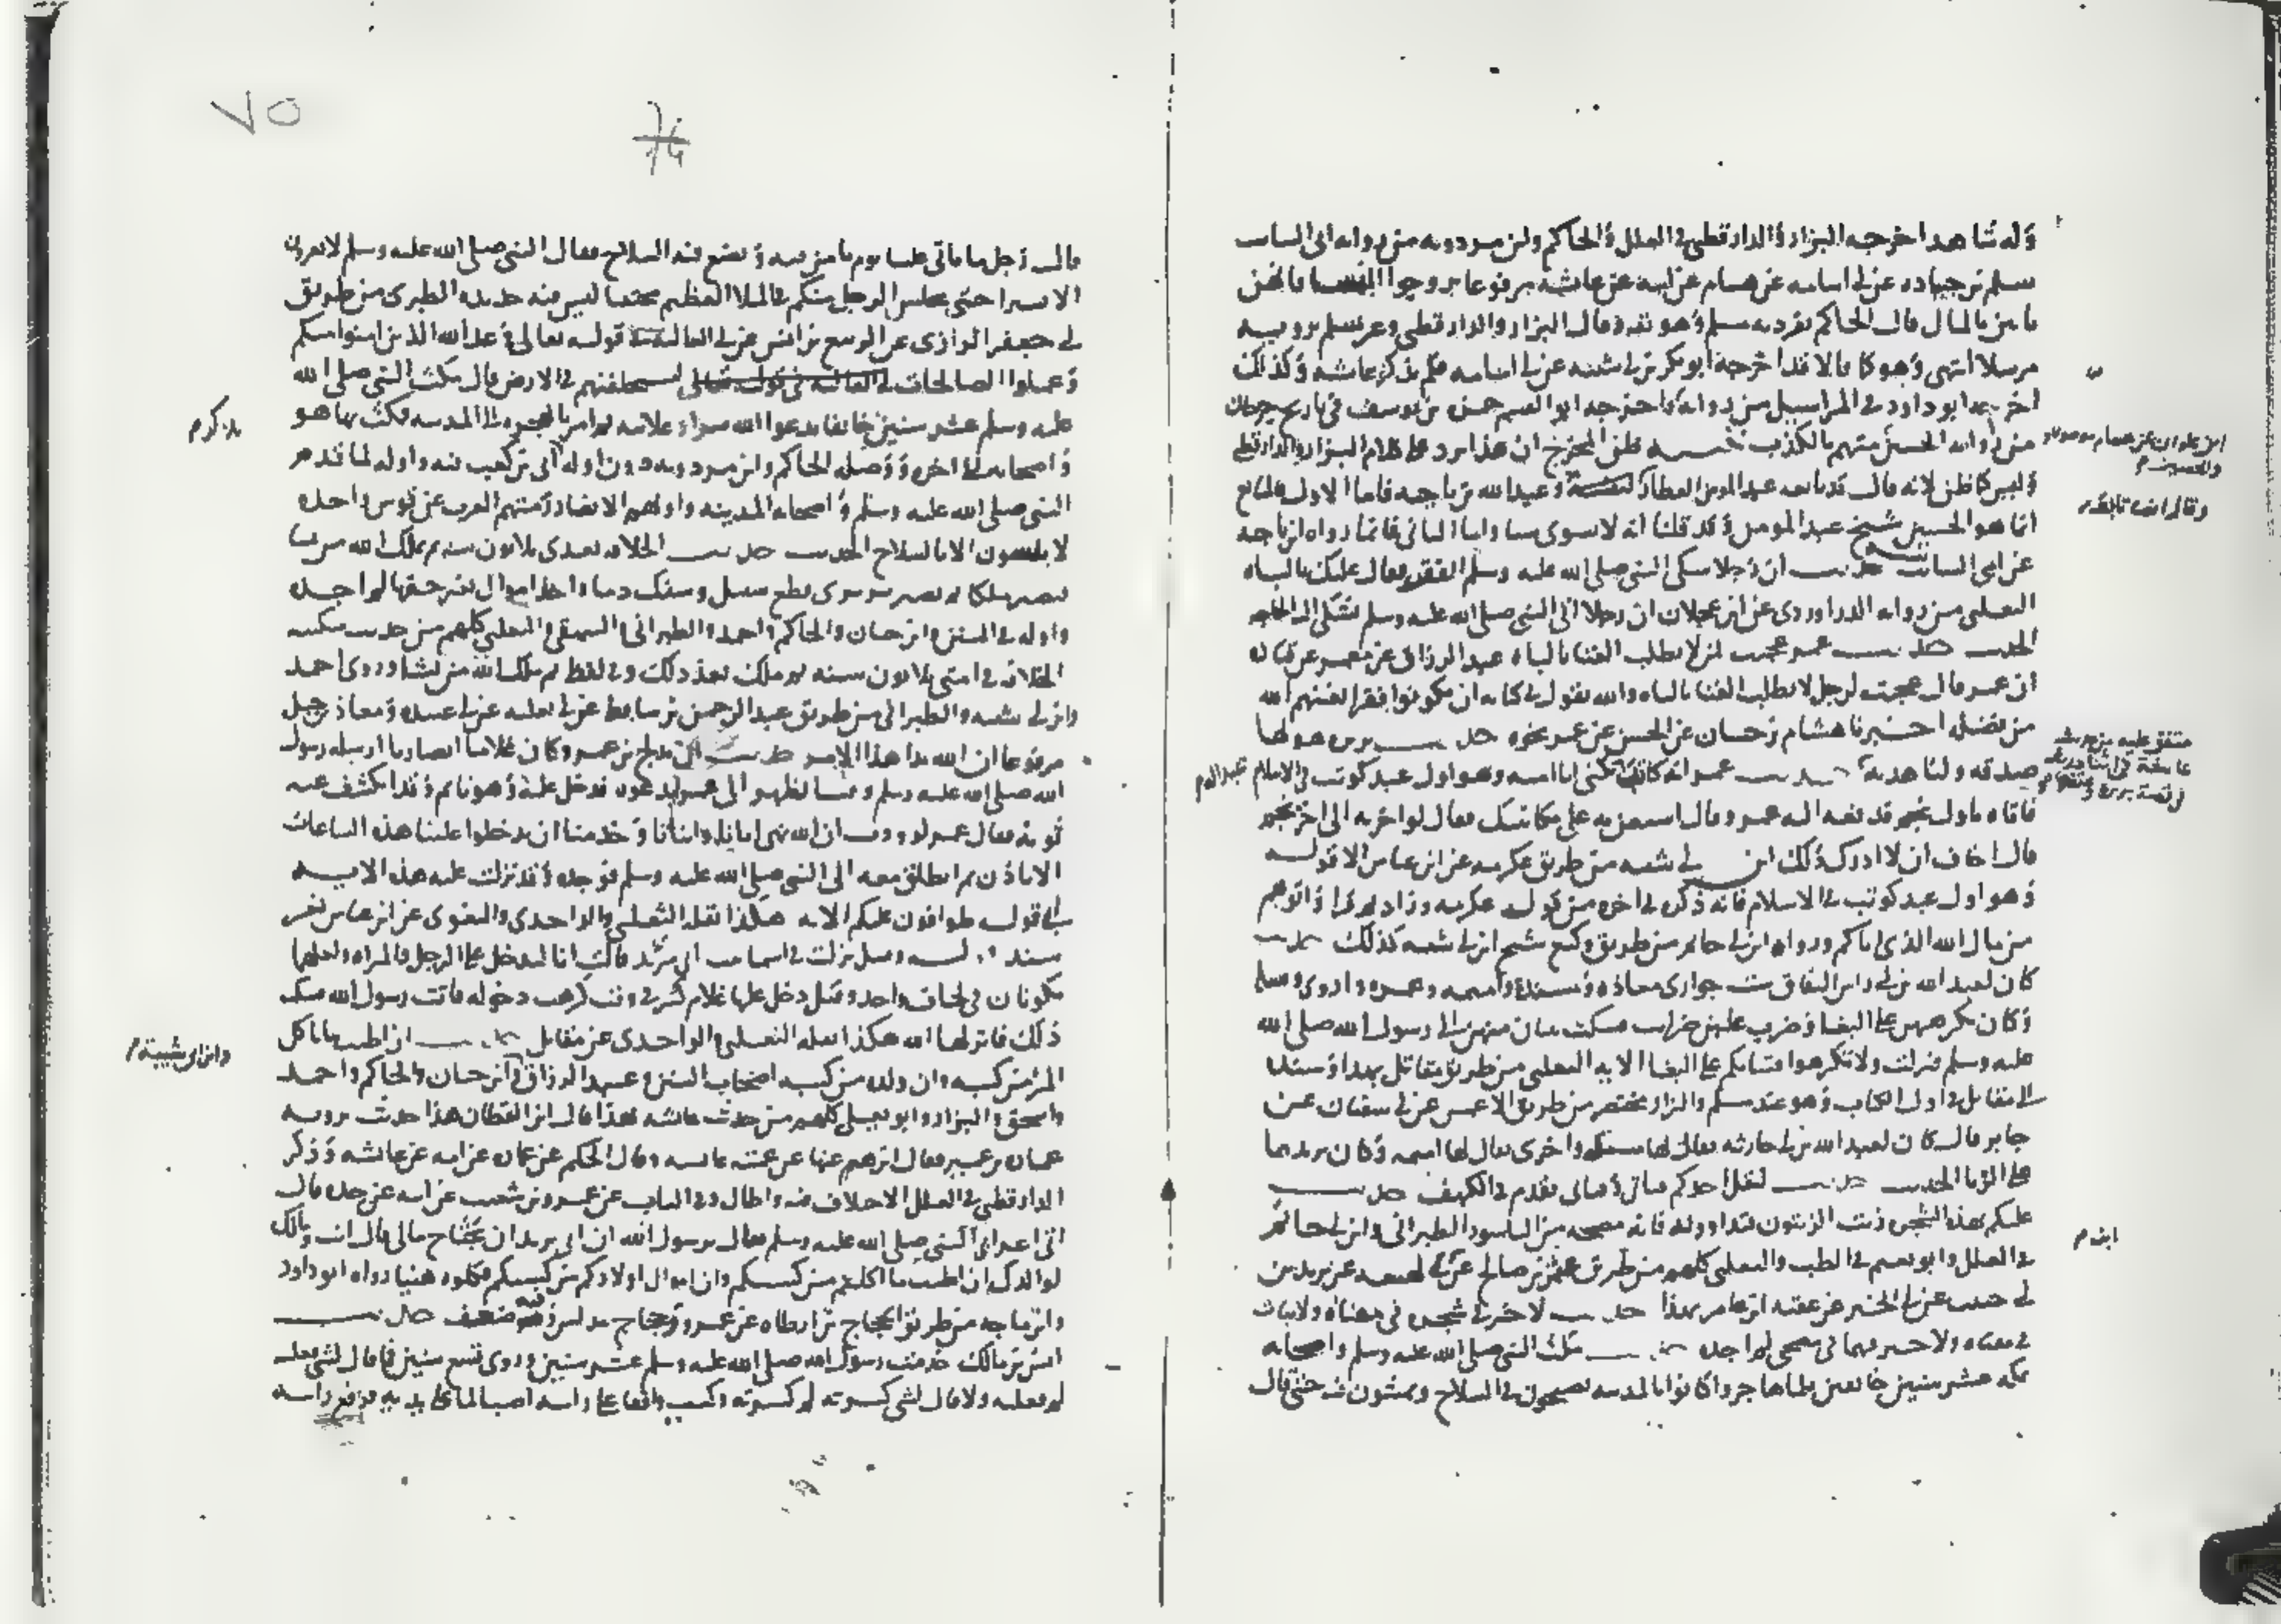 وله شاهد اخرجه البزار والدارقطني في العلل والحاكم وابن مردويه من رواية ابي السائب
سلم بن جنادة عن ابي اسامة عن هشام عن ابيه عن عائشة مرفوعا تزوجوا النسا فانهن
ياتين بالمال قال الحاكم تفرد به سلم وهو ثقة وقال البزار والدارقطني وغير سلم يرويه
مرسلا انتهى وهو كما قالا فقد اخرجه ابو بكر بن ابي شيبة عن ابي اسامة فلم يذكر عائشة وكذلك
اخرجه ابو داود في المراسيل من رواية واخرجه ابو القسم حمزة بن يوسف في تاريخ جرجان
من رواية الحسين متهم بالكذب تنبيه ظن المخرج ان هذا يرد على كلام البزار والدارقطني
وليس كما ظن لانه قال قد تابعه عبد المومن العطار وعبد الله بن ناجيه فاما الاول فالمتابع
انما هو الحسين شيخ عبد المومن وقد قلنا انه لا يسوى شيا واما الثاني فانما رواه ابن ناجية
عن ابي السائب حديث ان رجلا شكى الى النبي صلى الله عليه وسلم الفقر فقال عليك بالباه
الثعلبي من رواية الدراوردي عن ابن عجلان ان رجلا اتى النبي صلى الله عليه وسلم فشكى اليه الحاجة
الحديث حديث عمر عجبت لمن لا يطلب الغنا بالباه عبد الرزاق عن معمر عن قتادة
ان عمر قال عجبت لرجل لا يطلب الغنا بالباه والله يقول في كتابه ان يكونوا فقرا يغنهم الله
من فضله اخبرنا هشام بن حسان عن الحسن عن عمر نحوه حديث بريرة هو لها
صدقة ولنا هدية حديث عمر انه كاتب عبدا يكنى ابا امية وهو اول عبد كوتب في الاسلام
فاتاه باول نجم فدفعه اليه عمر وقال استعن به على مكاتبتك فقال لو اخرته الى اخر نجم
قال اخاف ان لا ادرك ذلك ابن ابي شيبة من طريق عكرمة عن ابن عباس الا قوله
وهو اول عبد كوتب في الاسلام فانه ذكره في اخره من قول عكرمة وزاد ثم قرا واتوهم
من مال الله الذي اتاكم ورواه ابن ابي حاتم من طريق وكيع شيخ ابن ابي شيبة كذلك حديث
كان لعبد الله بن ابي راس النفاق ست جواري معاذة ومسيكة واميمة وعمرة واروى وقتيلة
وكان يكرههن على البغا وضرب عليهن ضرائب فشكت ثنتان منهن الى رسول الله صلى الله
عليه وسلم فنزلت ولا تكرهوا فتياتكم على البغا الاية الثعلبي من طريق مقاتل بهذا وسنده
الى مقاتل في اول الكتاب وهو عند مسلم والبزار مختصر من طريق الاعمش عن ابي سفيان عن
جابر قال كان لعبد الله بن ابي جارية يقال لها مسيكة واخرى يقال لها اميمة وكان يريدهما
على الزنا الحديث حديث ليقل احدكم فتاي وفتاتي تقدم في الكهف حديث
عليكم بهذه الشجرة زيت الزيتون فتداووا به فانه مصحة من الباسور الطبراني وابن ابي حاتم
في العلل وابو نعيم في الطب والثعلبي كلهم من طريق عثمان بن صالح عن ابن لهيعة عن يزيد بن
ابي حبيب عن ابي الخير عن عقبة ابن عامر بهذا حديث لا خير في شجرة في مقناة ولا نبات
في مقناة ولا خير فيهما في مضحى لم اجده حديث مكث النبي صلى الله عليه وسلم واصحابه
بمكة عشر سنين خائفين فلما هاجروا كانوا بالمدينة يصبحون في السلاح ويمسون فيه حتى قال
وقال ابن تابعه
متفق عليه من حديث
عائشة في اثنا حديث
في قصة بريرة
ابن م
٧٥
٧٤
قال رجل ما ياتي علينا يوم نامن فيه ونضع فيه السلاح فقال النبي صلى الله عليه وسلم لا تغبرون
الا يسيرا حتى يجلس الرجل منكم في الملا العظيم محتبيا ليس فيه حديدة الطبري من طريق
ابي جعفر الرازي عن الربيع بن انس عن ابي العالية في قوله تعالى وعد الله الذين امنوا منكم
وعملوا الصالحات ليستخلفنهم في الارض قال مكث النبي صلى الله
عليه وسلم عشر سنين خائفا يدعوا الله سرا وعلانية ثم امر بالهجرة الى المدينة فمكث بها هو
واصحابه الى اخره ووصله الحاكم وابن مردويه دون اوله ابي بن كعب فيه واوله لما قدم
النبي صلى الله عليه وسلم واصحابه المدينة واوتهم الانصار رمتهم العرب عن قوس واحدة
لا يلبسون الا بالسلاح الحديث حديث الخلافة بعدي ثلاثون سنة ثم يملك الله من يشا
فتصير ملكا ثم تصير بزيزى قطع سبيل وسفك دما واخذ اموال بغير حقها لم اجده
واوله في السنن وابن حبان والحاكم واحمد والطبراني والبيهقي والثعلبي كلهم من حديث سفينة
الخلافة في امتي ثلاثون سنة ثم ملك بعد ذلك وفي لفظ ثم ملك الله من يشا وروى احمد
وابن ابي شيبة والطبراني من طريق عبد الرحمن بن سابط عن ابي ثعلبة عن ابي عبيدة ومعاذ بن جبل
مرفوعا ان الله بدا هذا الامر حديث ان مدلج بن عمرو وكان غلاما انصاريا ارسله رسول
الله صلى الله عليه وسلم وقت الظهر الى عمر ليدعوه فدخل عليه وهو نائم وقد انكشف عنه
ثوبه فقال عمر لوددت ان الله نهى اباءنا وابناءنا وخدمنا ان يدخلوا علينا هذه الساعات
الا باذن ثم انطلق معه الى النبي صلى الله عليه وسلم فوجده وقد نزلت عليه هذه الاية
الى قوله طوافون عليكم الاية هكذا نقله الثعلبي والواحدي والبغوي عن ابن عباس بغير
سند قوله وقيل نزلت في اسما بنت ابي مرثد قالت انا لندخل على الرجل والمراة ولعلهما
يكونان في لحاف واحد وقيل دخل عليها غلام كبير في وقت كرهت دخوله فاتت رسول الله
ذلك فانزلها الله هكذا نقله الثعلبي والواحدي عن مقاتل حديث ان اطيب ما ياكل
المرء من كسبه وان ولده من كسبه اصحاب السنن وعبد الرزاق وابن حبان والحاكم واحمد
واسحق والبزار وابو يعلى كلهم من حديث عائشة بهذا قال ابن القطان هذا حديث يرويه
عمارة بن عمير فقال ابراهيم عنها عن عمته عائشة وقال الحكم عن عمارة عن امه عن عائشة وذكر
الدارقطني في العلل الاختلاف فيه واطال وفي الباب عن عمرو بن شعيب عن ابيه عن جده قال
اتى اعرابي النبي صلى الله عليه وسلم فقال يرسول الله ان ابي يريد ان يجتاح مالي قال انت ومالك
لوالدك ان اطيب ما اكلتم من كسبكم وان اموال اولادكم من كسبكم فكلوه هنيا رواه ابو داود
وابن ماجه من طريق الحجاج بن ارطاه عن عمرو وحجاج مدلس وفيه ضعف حديث
انس بن مالك خدمت رسول الله صلى الله عليه وسلم عشر سنين وروى تسع سنين فما قال لشي فعلته
لم فعلته ولا قال لشي كسرته لم كسرته وكنت واقفا على راسه اصب الما على يديه فرفع راسه
وابن ابي شيبة م